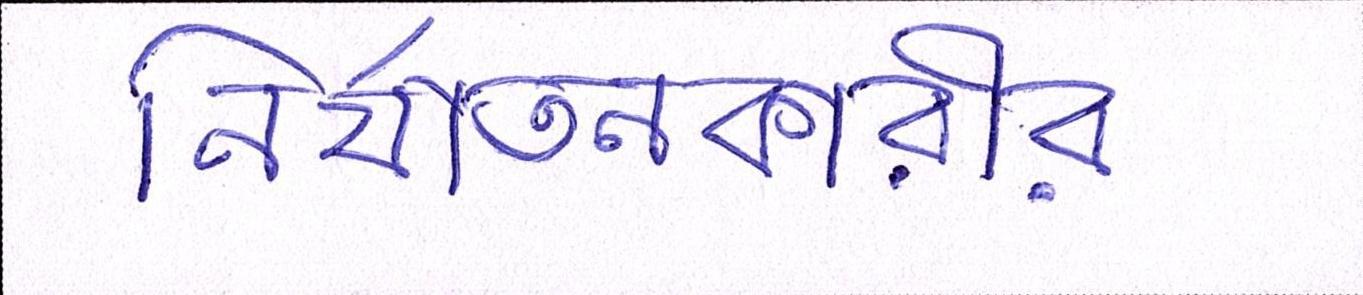 নির্যাতনকারীর